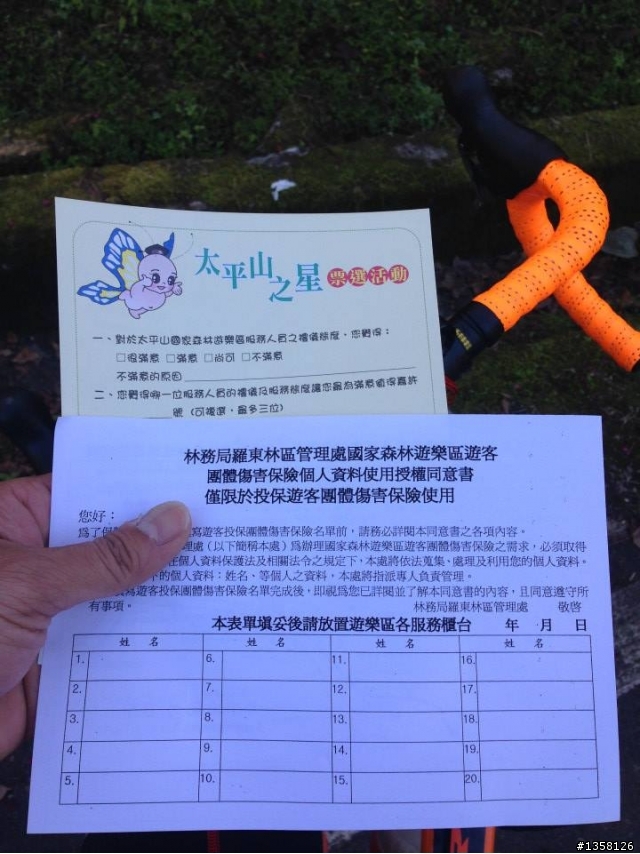 太平山之星 票選活動
一、對於太平山國家森林遊樂區服務人員之禮儀態度，您覺得：
□很滿意 □滿意 □尚可 □不滿意
不滿意的原因
二、您覺得哪一位服務人員的禮儀及服務態度讓您最為滿意值得嘉許
號（可複選，最多三位）
林務局羅東林區管理處國家森林遊樂區遊客
團體傷害保險個人資料使用授權同意書
僅限於投保遊客團體傷害保險使用
您好：
為了保 寫遊客投保團體傷害保險名單前，請務必詳閱本同意書之各項內容。
管理處（以下簡稱本處）為辦理國家森林遊樂區遊客團體傷害保險之需求，必須取得
在個人資料保護法及相關法令之規定下，本處將依法蒐集、處理及利用您的個人資料。
下的個人資料：姓名、等個人之資料，本處將指派專人負責管理。
寫遊客投保團體傷害保險名單完成後，即視為您已詳閱並了解本同意書的內容，且同意遵守所
有事項。 林務局羅東林區管理處 敬啓
本表單填妥後請放置遊樂區各服務櫃台 年 月 日
姓 名 姓 名 姓 名 姓 名
1. 6. 11. 16.
2. 7. 12. 17.
3. 8. 13. 18.
4. 9. 14. 19.
5. 10. 15. 20.
#1358126